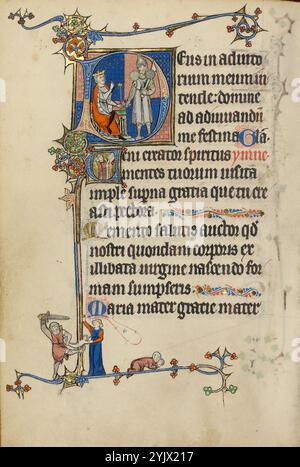 Deus in adiuto
rium meum in
tende: domine
ad adiuvandū
me festina Gla.
Veni creator spiritus ymne
mentes tuorum visita
imple supna gratia que tu cre
asti pectora.
Memento salutis auctor qd
nostri quondam corporis ex
illibata virgine nascendo for
mam sumpseris.
Maria mater gracie mater
alamy
Image ID: 2YJX217
www.alamy.com